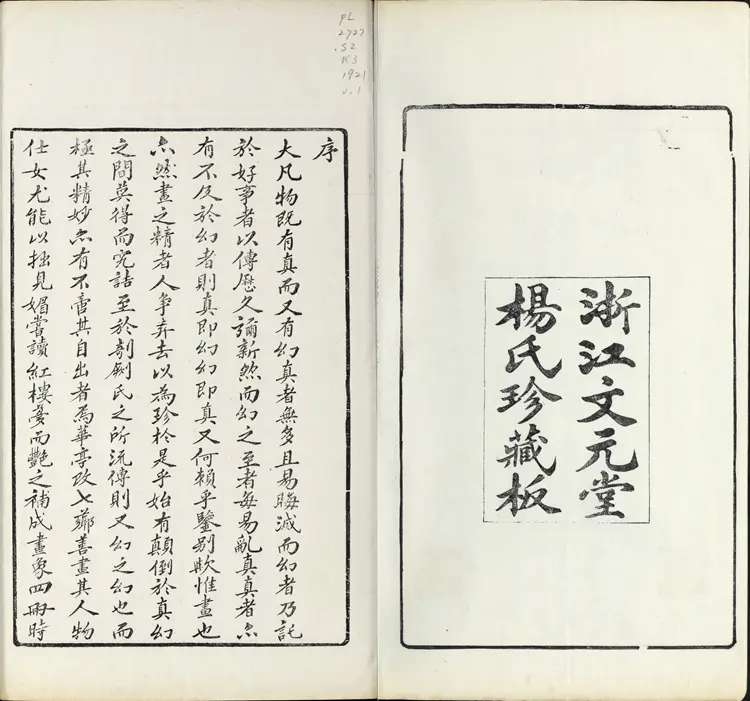 浙江文元堂
楊氏珍藏板
PL
2727
.S2
K3
1921
v.1
序
大凡物既有真而又有幻真者無多且易晦滅而幻者乃託
於好事者以傳歷久彌新然而幻之至者每易亂真真者亦
有不及於幻者則真即幻幻即真又何賴乎鑒别歟惟畫也
亦然畫之精者人争弆去以為珍於是乎始有顛倒於真幻
之間莫得而究詰至於剞劂氏之所流傳則又幻之幻也而
極其精妙亦有不啻其自出者焉華亭改七薌善畫其人物
仕女尤能以拙見媚嘗讀紅樓夢而艷之補成畫象四冊時